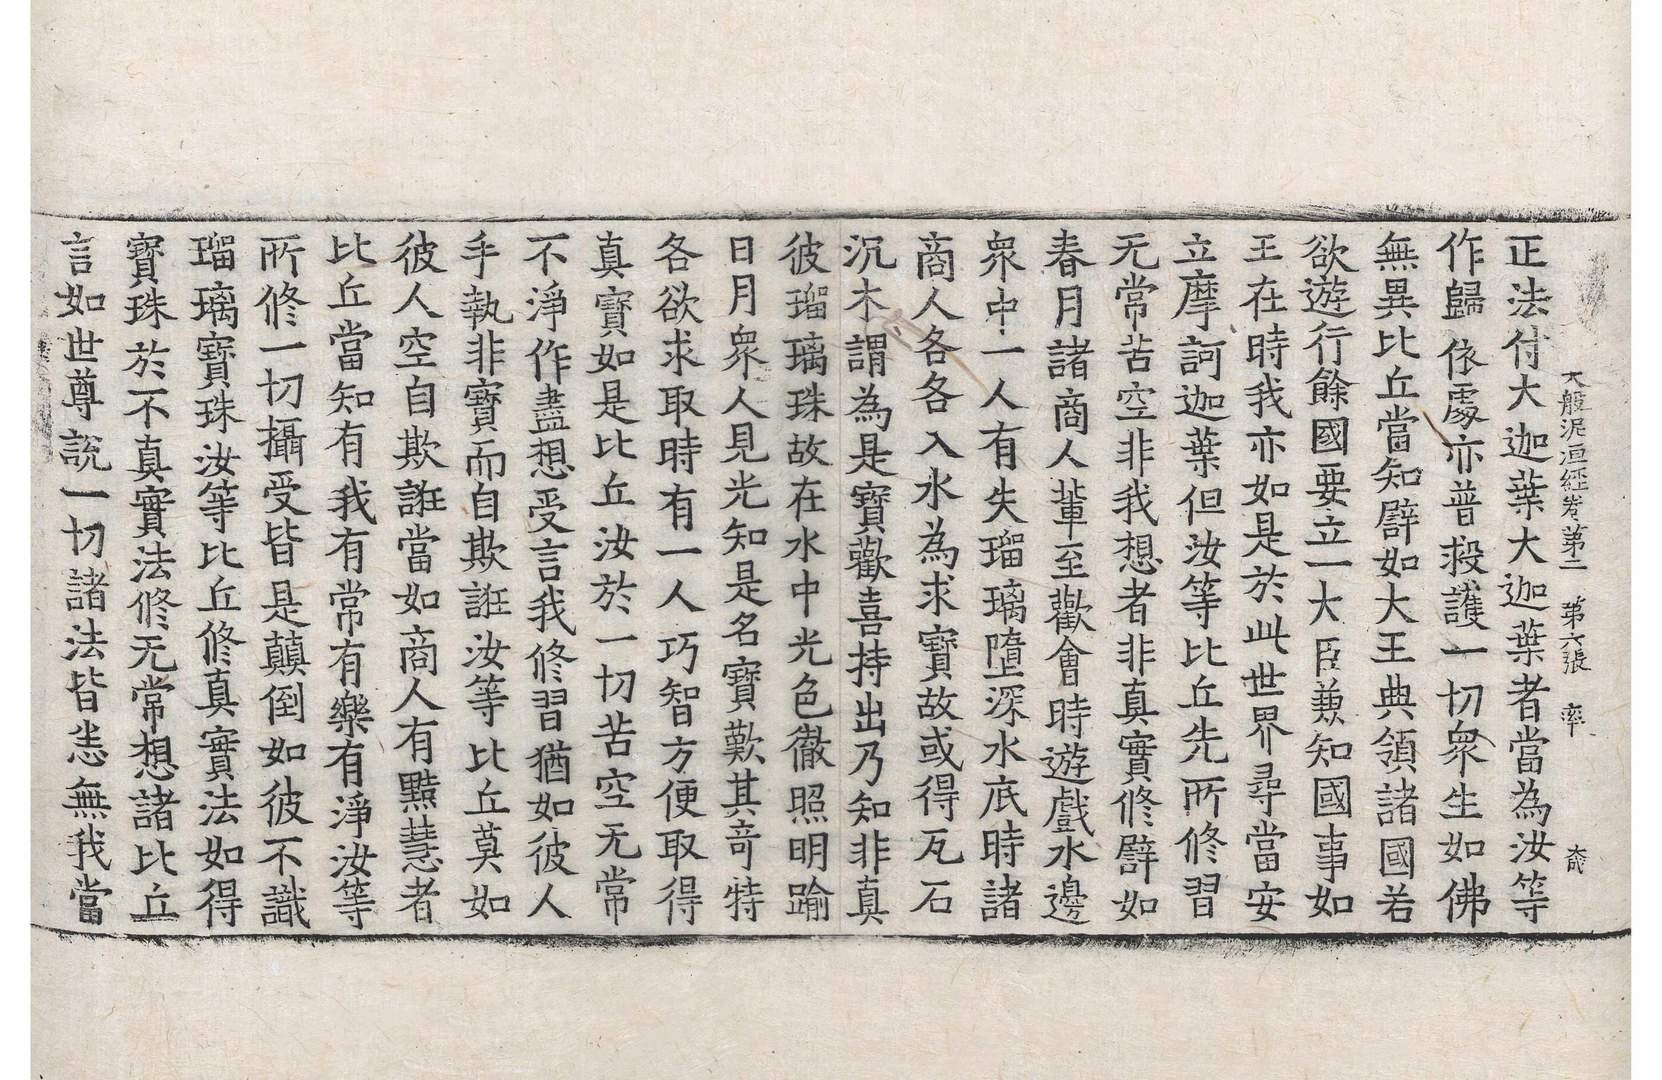 大般泥洹經卷第二　第六張　率
正法付大迦葉大迦葉者當為汝等
作歸依處亦普救護一切眾生如佛
無異比丘當知譬如大王典領諸國若
欲遊行餘國要立一大臣兼知國事如
王在時我亦如是於此世界尋當安
立摩訶迦葉但汝等比丘先所修習
无常苦空非我想者非真實修譬如
春月諸商人輩至歡會時遊戲水邊
眾中一人有失瑠璃墮深水底時諸
商人各各入水為求寶故或得瓦石
沉木謂為是寶歡喜持出乃知非真
彼瑠璃珠故在水中光色徹照明踰
日月眾人見光知是名寶歎其奇特
各欲求取時有一人巧智方便取得
真寶如是比丘汝於一切苦空无常
不淨作盡想受言我修習猶如彼人
手執非寶而自欺誑汝等比丘莫如
彼人空自欺誑當如商人有黠慧者
比丘當知有我有常有樂有淨汝等
所修一切攝受皆是顛倒如彼不識
瑠璃寶珠汝等比丘修真實法如得
寶珠於不真實法修无常想諸比丘
言如世尊說一切諸法皆悉無我當